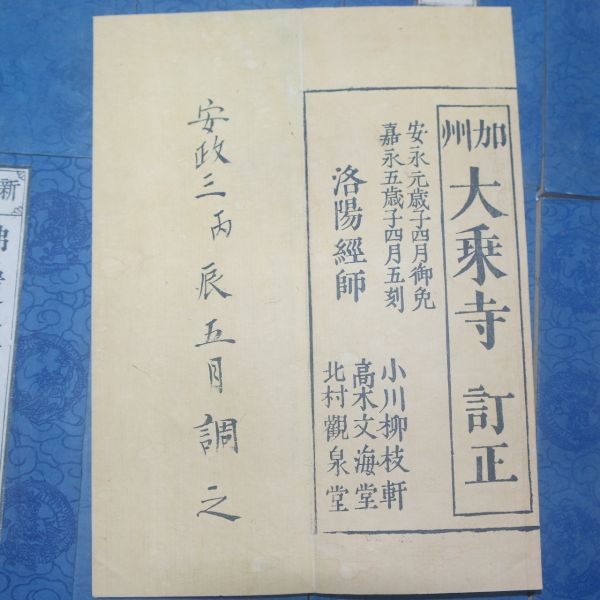 加州
大乗寺 訂正
安永元歳子四月御免
嘉永五歳子四月五刻
洛陽經師
小川柳枝軒
高木文海堂
北村觀泉堂
安政三丙辰五月調之
新